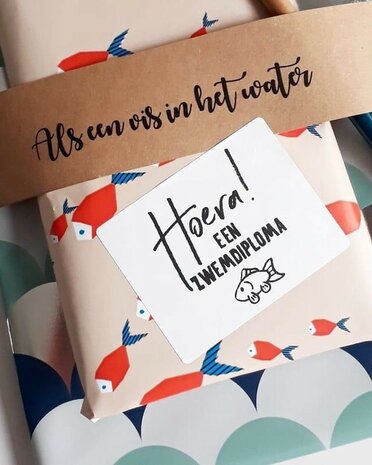 Als een vis in het water
Hoera!
EEN
ZWEMDIPLOMA